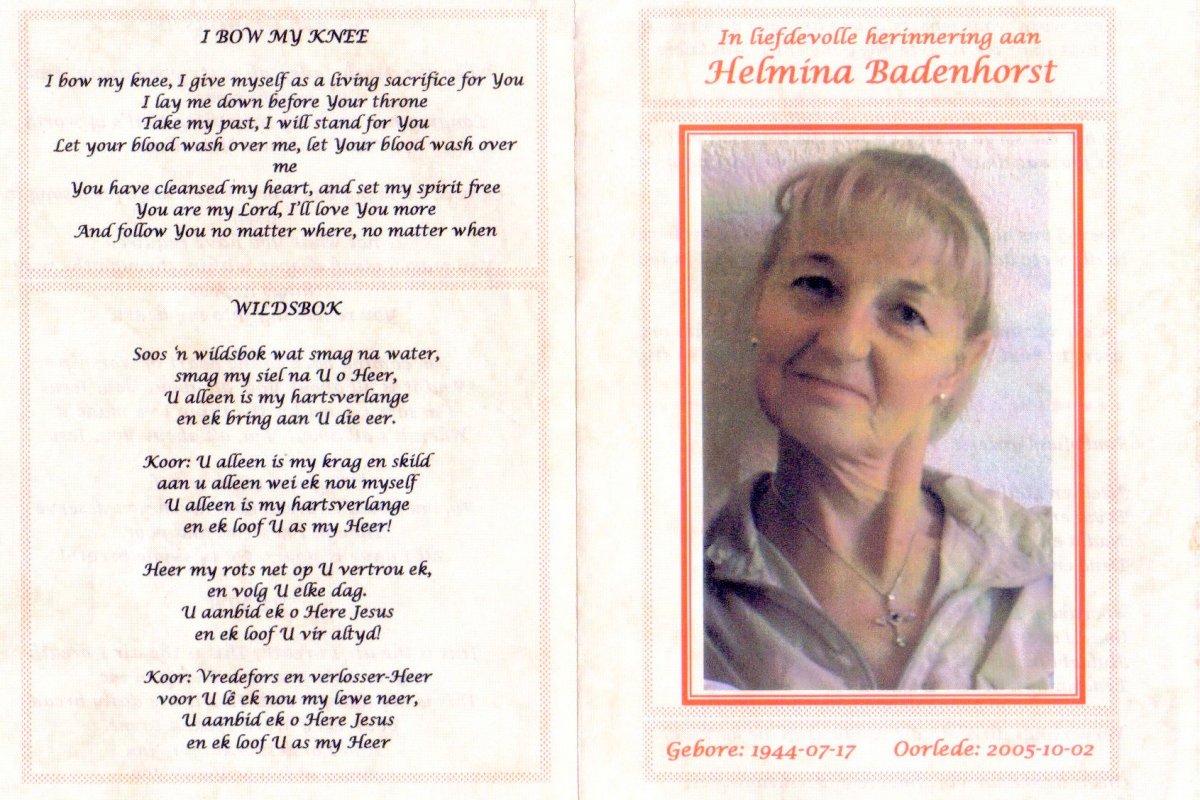 I BOW MY KNEE
I bow my knee, I give myself as a living sacrifice for You
I lay me down before Your throne
Take my past, I will stand for You
Let your blood wash over me, let Your blood wash over
me
You have cleansed my heart, and set my spirit free
You are my Lord, I'll love You more
And follow You no matter where, no matter when
WILDSBOK
Soos 'n wildsbok wat smag na water,
smag my siel na U o Heer,
U alleen is my hartsverlange
en ek bring aan U die eer.
Koor: U alleen is my krag en skild
aan u alleen wei ek nou myself
U alleen is my hartsverlange
en ek loof U as my Heer!
Heer my rots net op U vertrou ek,
en volg U elke dag.
U aanbid ek o Here Jesus
en ek loof U vir altyd!
Koor: Vredefors en verlosser-Heer
voor U lê ek nou my lewe neer,
U aanbid ek o Here Jesus
en ek loof U as my Heer
In liefdevolle herinnering aan
Helmina Badenhorst
Gebore: 1944-07-17 Oorlede: 2005-10-02